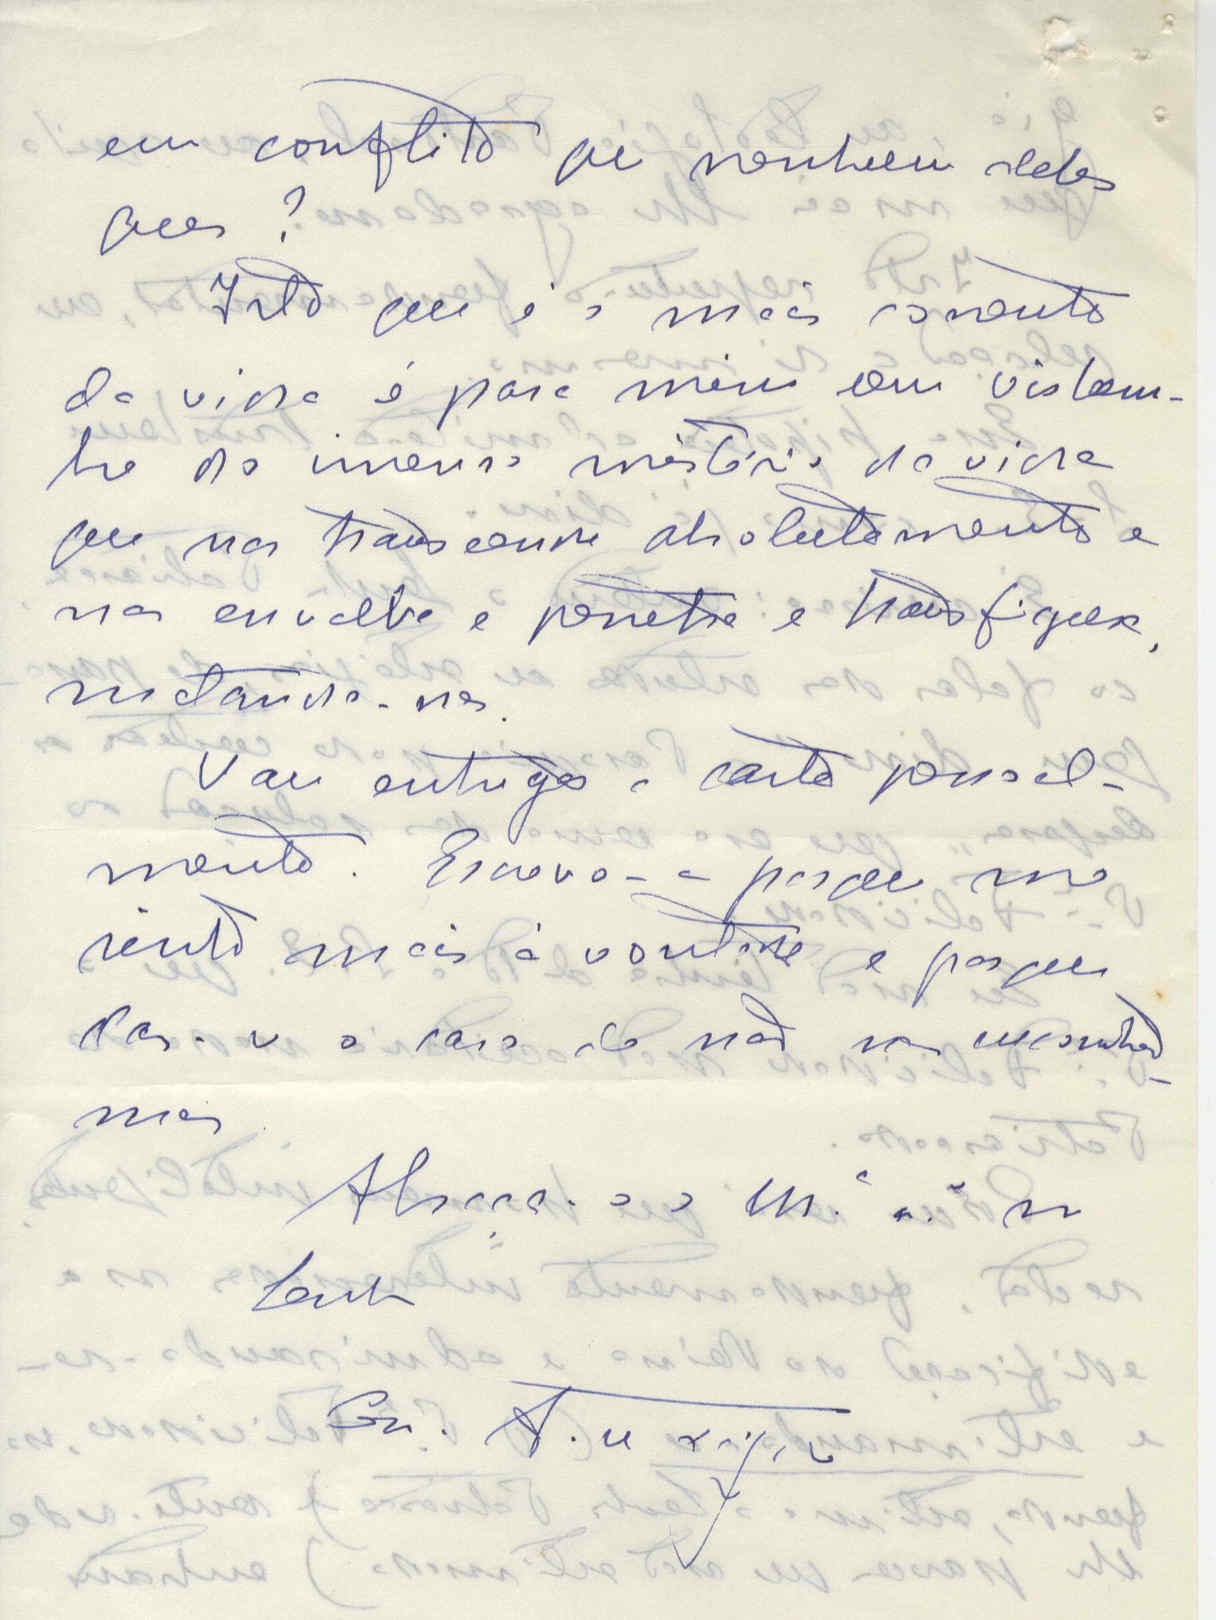 em conflito que nenhum deles
quer?
Isto que é o mais corrente
da vida é para mim um vislum-
bre do imenso mistério da vida
que nos transcende absolutamente e
nos envolve e penetra e transfigura,
matando-nos.
Vou entregar a carta pessoal-
mente. Escrevo-a porque me
sinto mais à vontade e porque
dar-se o caso de não nos encontrar-
mos.
Abraça-o o